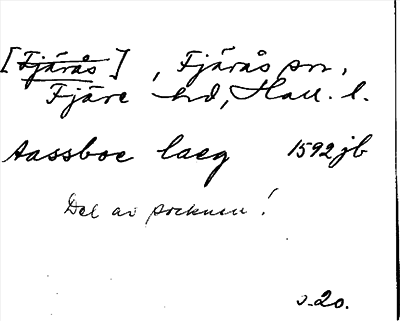 [Fjärås], Fjärås sn,
Fjäre hd, Hall. l.
Aassboe laeg 1592 jb
Del av socknen!
s. 20.